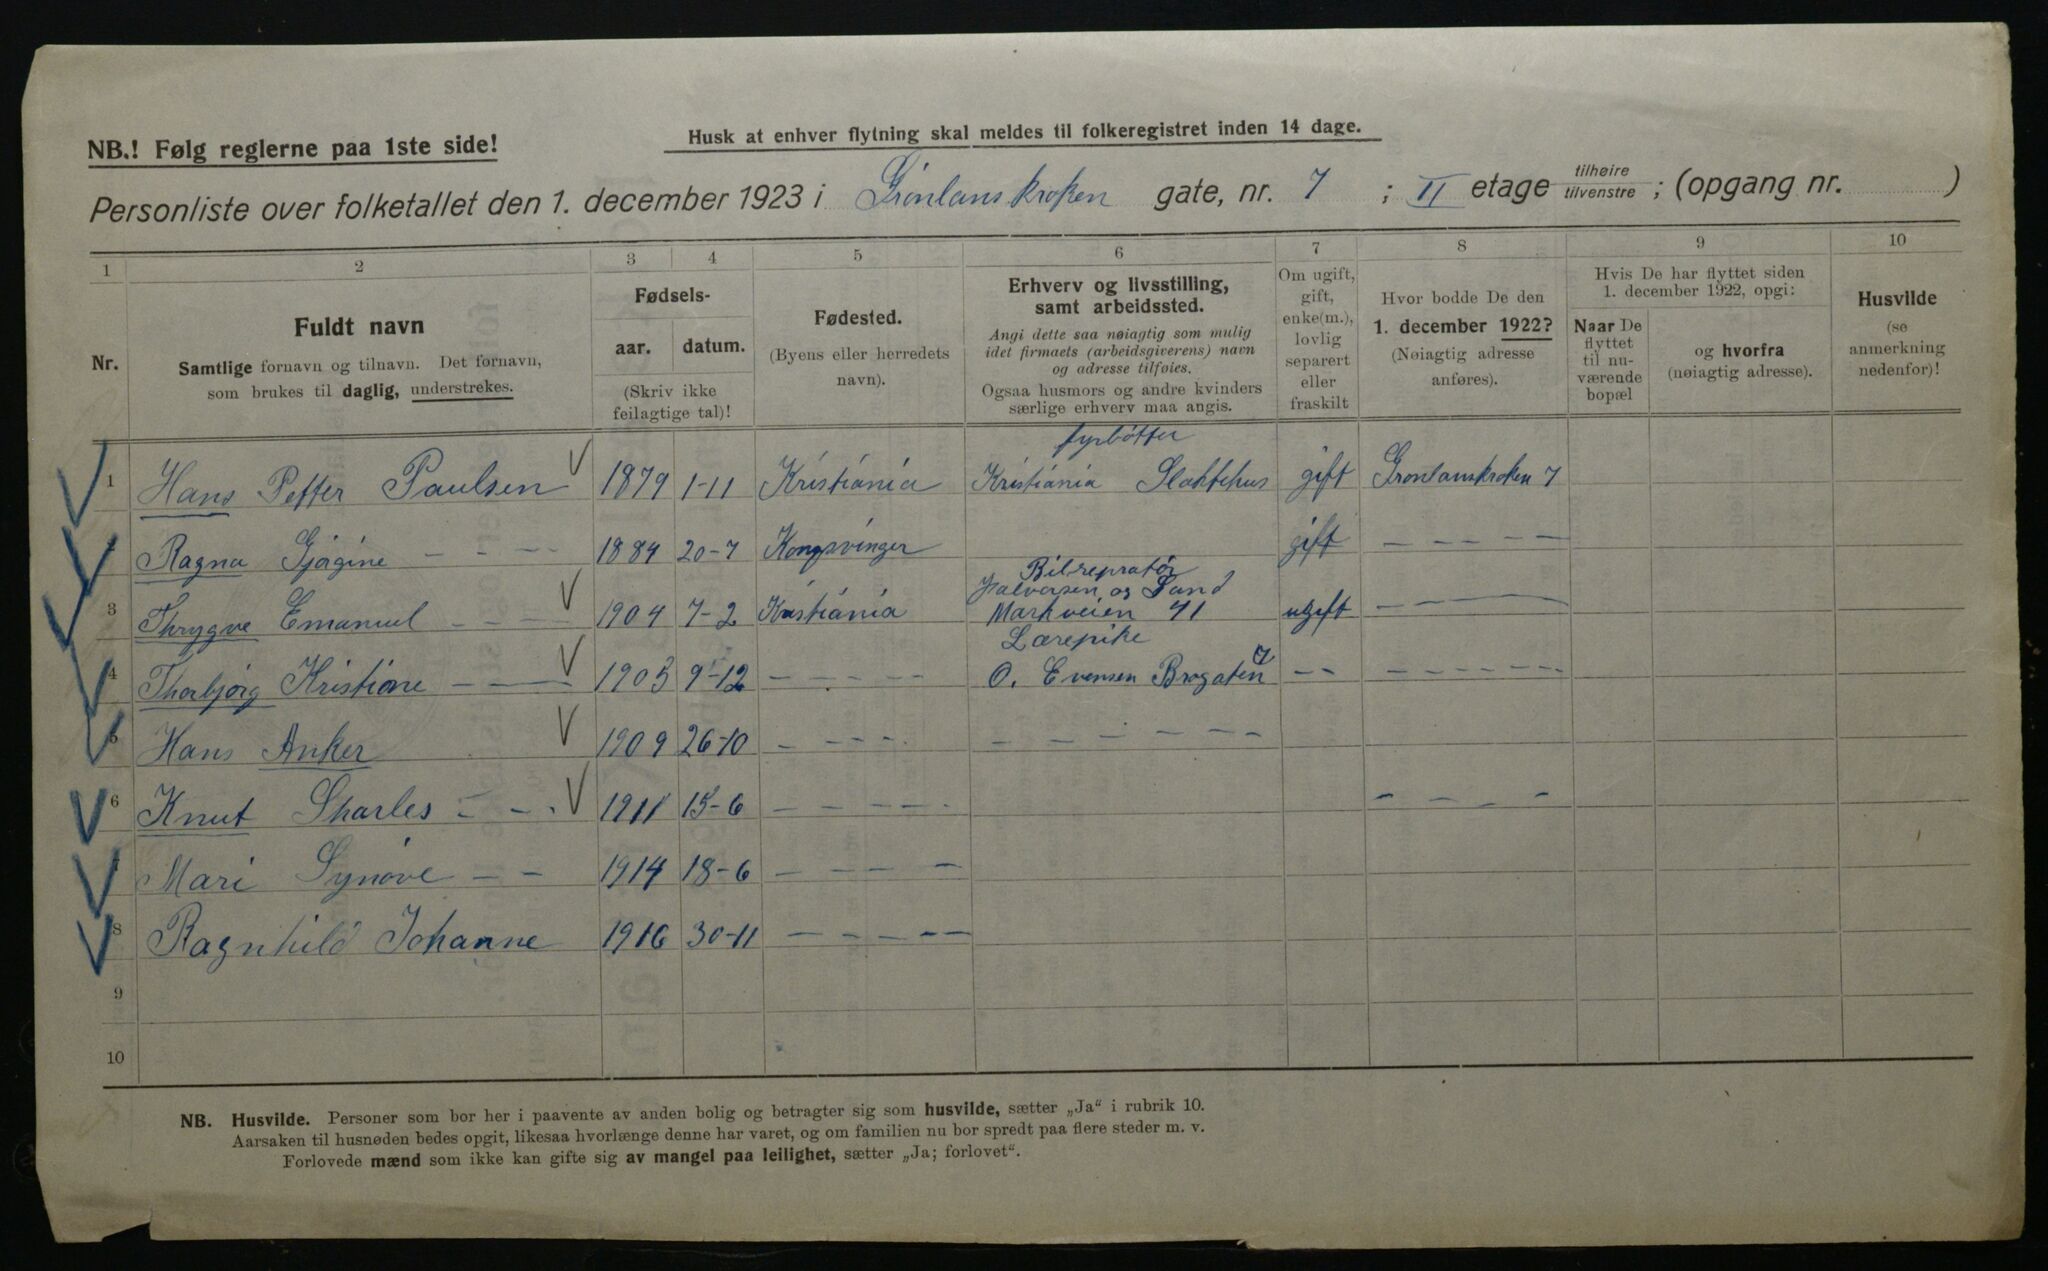 NB.! Følg reglerne paa 1ste side!
Husk at enhver flytning skal meldes til folkeregistret inden 14 dage.
Personliste over folketallet den 1. december 1923 i Grönlanskroken gate, nr. 7 ; II etage tilhøire tilvenstre ; (opgang nr. )
1 2 3 4 5 6 7 8 9 10
Nr.
Fuldt navn
Samtlige fornavn og tilnavn. Det fornavn,
som brukes til daglig, understrekes.
Fødsels-
aar. datum.
(Skriv ikke
feilagtige tal)!
Fødested.
(Byens eller herredets
navn).
Erhverv og livsstilling,
samt arbeidssted.
Angi dette saa nøiagtig som mulig
idet firmaets (arbeidsgiverens) navn
og adresse tilføies.
Ogsaa husmors og andre kvinders
særlige erhverv maa angis.
Om ugift,
gift,
enke(m.),
lovlig
separert
eller
fraskilt
Hvor bodde De den
1. december 1922?
(Nøiagtig adresse
anføres).
Hvis De har flyttet siden
1. december 1922, opgi:
Naar De
flyttet
til nu-
værende
bopæl
og hvorfra
(nøiagtig adresse).
Husvilde
(se
anmerkning
nedenfor)!
fyrbötter
1 Hans Petter Paulsen 1879 1-11 Kristiania Kristiania Slaktehus gift Gronlanskroken 7
Ragna Gjörgine - - - 1884 20-7 Kongsvinger gift - - - - -
Bilrepratör
Halvorsen og Sand
3 Thrygve Emanuel - - - 1904 7-2 Kristiania Markveien 41 ugift - ---
Lærepike
4 Thorbjörg Kristiane - - 1905 9-12 - - - - - O. Evensen Brogaten 7 - - - - - - - -
5 Hans Anker 1909 26-10 - - - - - - - - - -
6 Knut Sharles - - - 1911 15-6 - - - - - - - - -
Mari Synöve - - 1914 18-6 - - - - -
8 Ragnhild Johanne 1916 30-11 - - - - -
9
10
NB. Husvilde. Personer som bor her i paavente av anden bolig og betragter sig som husvilde, sætter „Ja“ i rubrik 10.
Aarsaken til husnøden bedes opgit, likesaa hvorlænge denne har varet, og om familien nu bor spredt paa flere steder m. v.
Forlovede mænd som ikke kan gifte sig av mangel paa leilighet, sætter „Ja; forlovet“.